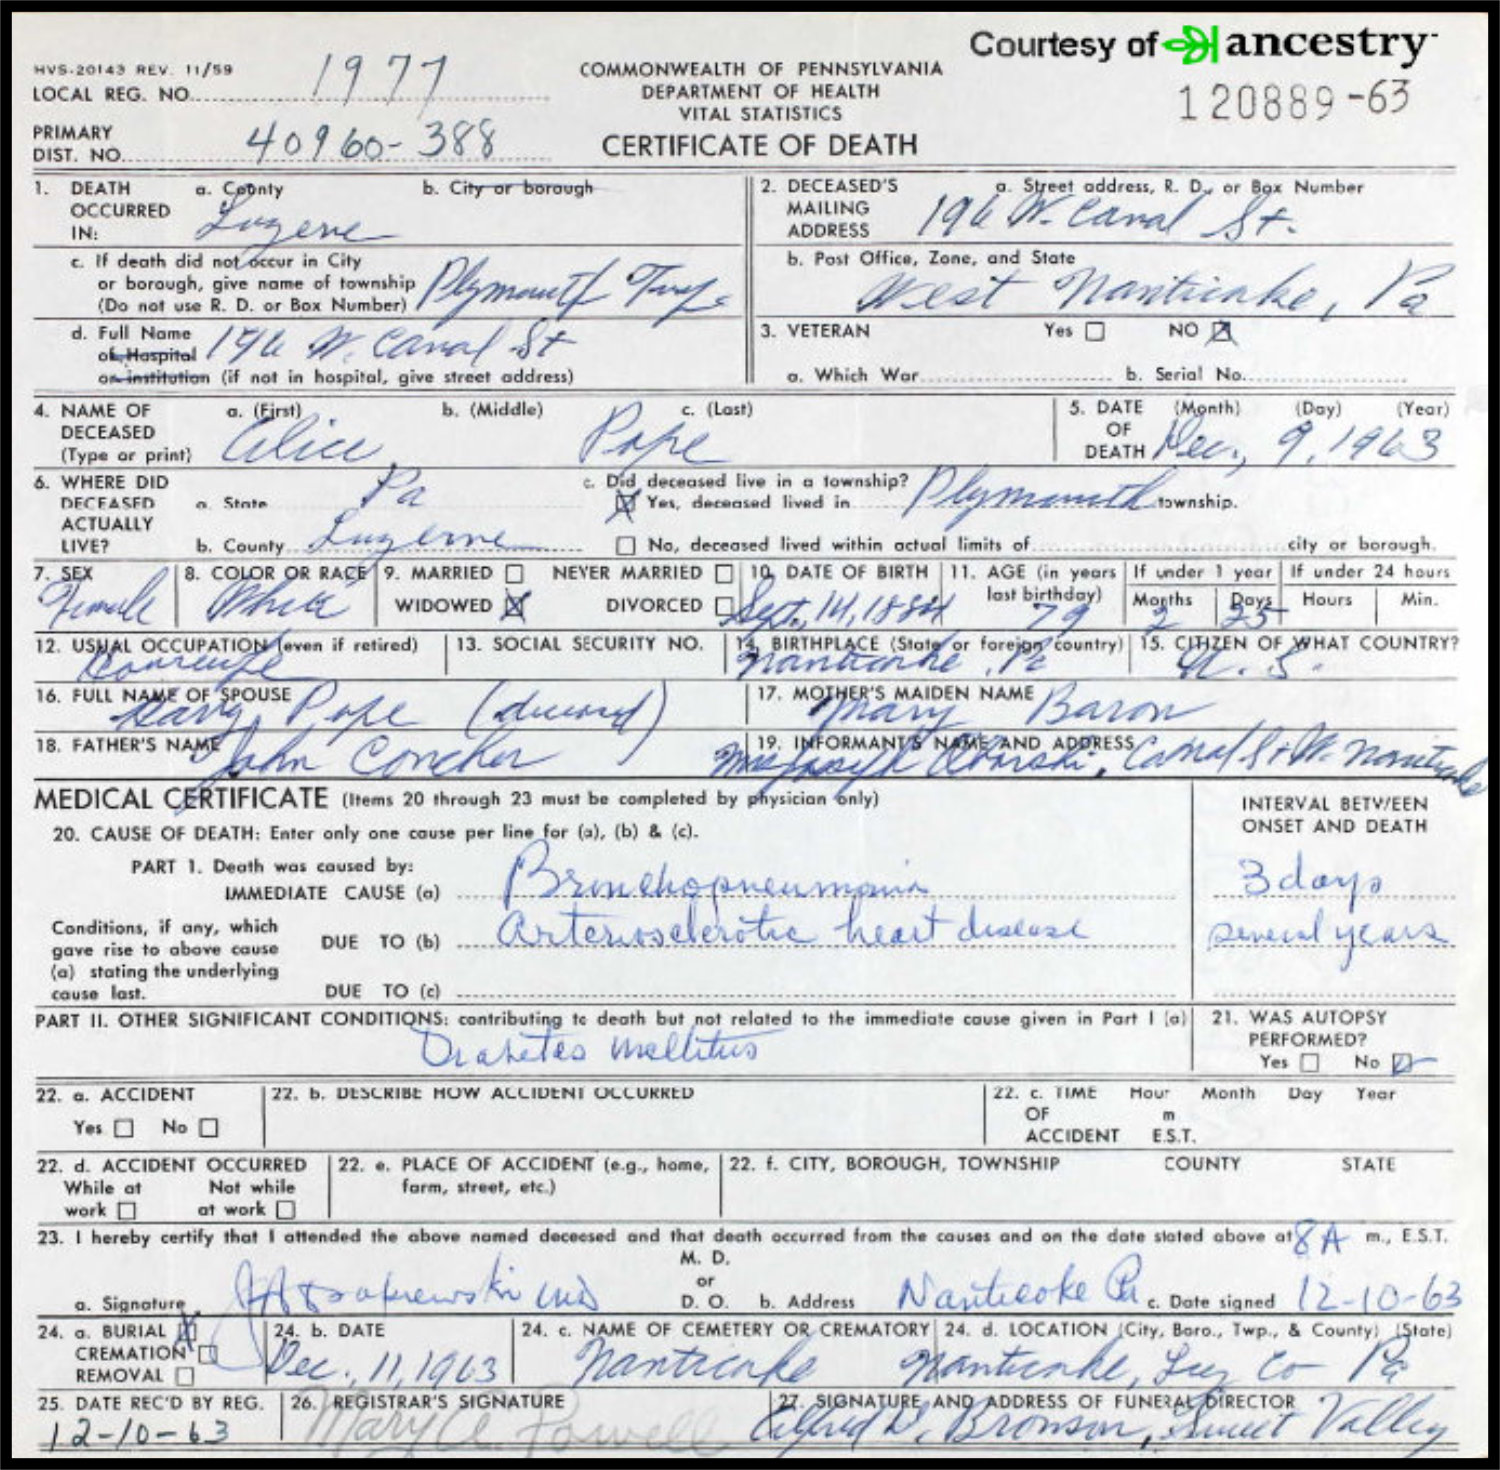 Courtesy of ancestry
HVS-20143 REV. 11/59
LOCAL REG. NO. 1977
COMMONWEALTH OF PENNSYLVANIA
DEPARTMENT OF HEALTH
VITAL STATISTICS
CERTIFICATE OF DEATH
120889-63
PRIMARY
DIST. NO. 40960-388
1. DEATH OCCURRED IN: a. County Luzerne b. City or borough
c. If death did not occur in City
or borough, give name of township
(Do not use R. D. or Box Number) Plymouth Twp.
d. Full Name
of Hospital 196 W. Canal St
or institution (if not in hospital, give street address)
2. DECEASED'S MAILING ADDRESS a. Street address, R. D., or Box Number
196 W. Canal St.
b. Post Office, Zone, and State
West Nanticoke, Pa
3. VETERAN Yes NO
a. Which War b. Serial No.
4. NAME OF DECEASED (Type or print) a. (First) b. (Middle) c. (Last)
Alice Pope
5. DATE OF DEATH (Month) (Day) (Year)
Dec., 9, 1963
6. WHERE DID DECEASED ACTUALLY LIVE? a. State Pa
b. County Luzerne
c. Did deceased live in a township?
Yes, deceased lived in Plymouth township.
No, deceased lived within actual limits of city or borough.
7. SEX Female
8. COLOR OR RACE White
9. MARRIED NEVER MARRIED
WIDOWED DIVORCED
10. DATE OF BIRTH Sept. 14, 1884
11. AGE (in years last birthday) 79
If under 1 year If under 24 hours
Months 2 Days 25 Hours Min.
12. USUAL OCCUPATION (even if retired)
Housewife
13. SOCIAL SECURITY NO.
14. BIRTHPLACE (State or foreign country)
Nanticoke, Pa
15. CITIZEN OF WHAT COUNTRY?
U. S.
16. FULL NAME OF SPOUSE
Pope (deceased)
17. MOTHER'S MAIDEN NAME
Mary Baron
18. FATHER'S NAME
John Concher
19. INFORMANT'S NAME AND ADDRESS
Mrs Joseph Canal St W. Nanticoke
MEDICAL CERTIFICATE (Items 20 through 23 must be completed by physician only)
INTERVAL BETWEEN
ONSET AND DEATH
20. CAUSE OF DEATH: Enter only one cause per line for (a), (b) & (c).
PART 1. Death was caused by:
IMMEDIATE CAUSE (a) Bronchopneumonia 3 days
Conditions, if any, which
gave rise to above cause
(a) stating the underlying
cause last.
DUE TO (b) Arteriosclerotic heart disease several years
DUE TO (c)
PART II. OTHER SIGNIFICANT CONDITIONS: contributing to death but not related to the immediate cause given in Part I (a)
Diabetes mellitus
21. WAS AUTOPSY
PERFORMED?
Yes No
22. a. ACCIDENT
Yes No
22. b. DESCRIBE HOW ACCIDENT OCCURRED
22. c. TIME OF ACCIDENT Hour Month Day Year
m
E.S.T.
22. d. ACCIDENT OCCURRED
While at work Not while at work
22. e. PLACE OF ACCIDENT (e.g., home,
farm, street, etc.)
22. f. CITY, BOROUGH, TOWNSHIP COUNTY STATE
23. I hereby certify that I attended the above named deceesed and that death occurred from the causes and on the date stated above at 8 A m., E.S.T.
M. D.
or
D. O.
a. Signature MD
b. Address Nanticoke Pa c. Date signed 12-10-63
24. a. BURIAL
CREMATION
REMOVAL
24. b. DATE
Dec., 11, 1963
24. c. NAME OF CEMETERY OR CREMATORY
Nanticoke
24. d. LOCATION (City, Boro., Twp., & County) (State)
Nanticoke, Luz Co Pa
25. DATE REC'D BY REG.
12-10-63
26. REGISTRAR'S SIGNATURE
Mary A. Powell
27. SIGNATURE AND ADDRESS OF FUNERAL DIRECTOR
Alfred D. Bronson, Sweet Valley